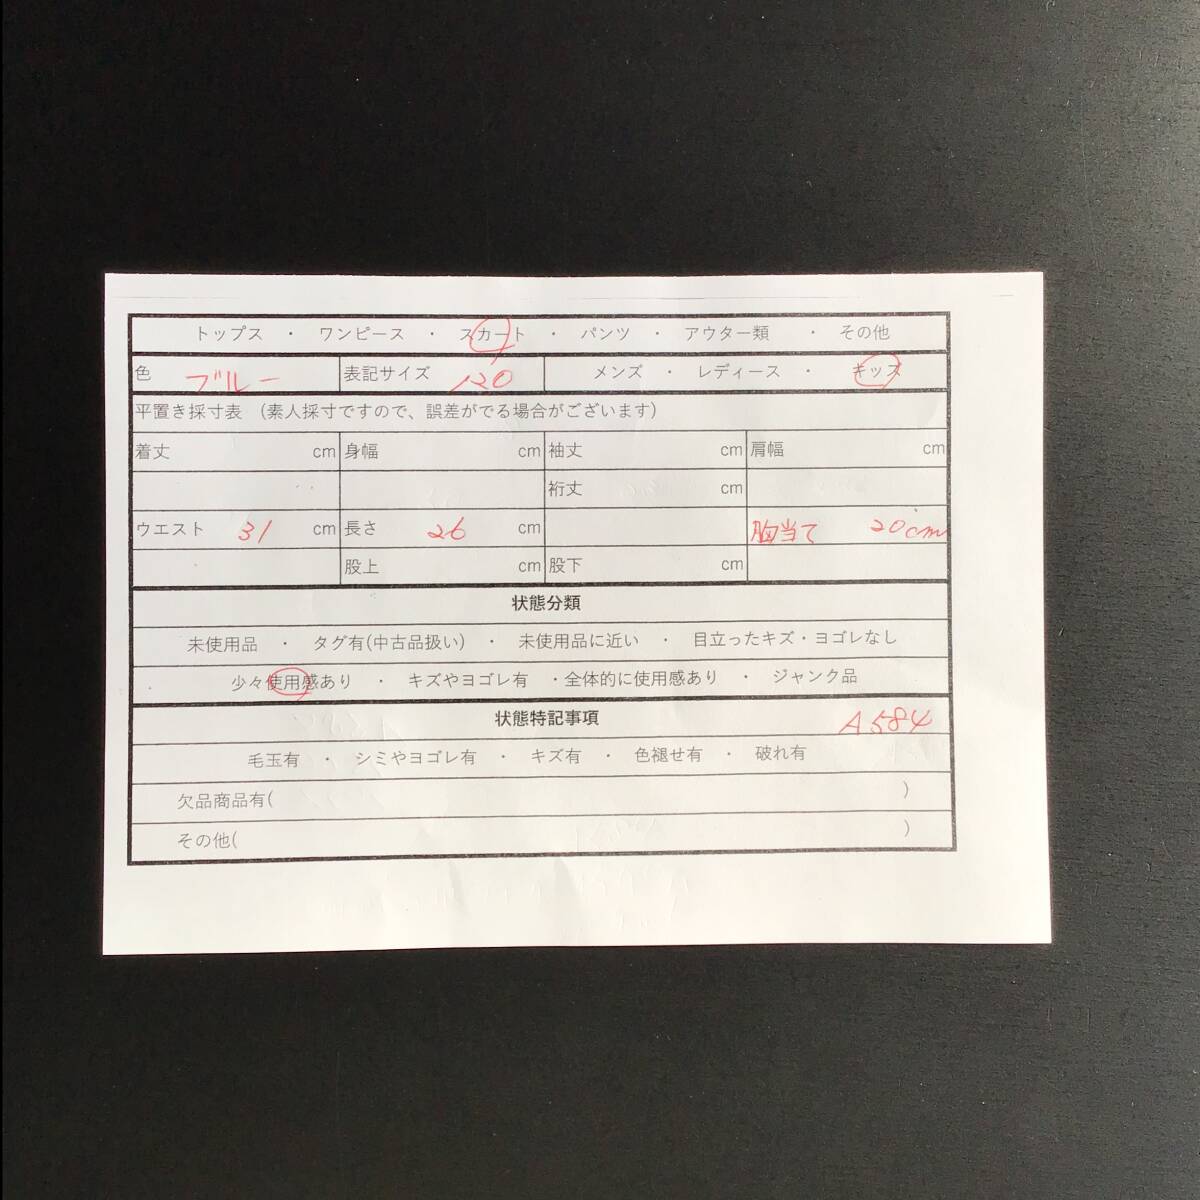 トップス ・ ワンピース ・ スカート ・ パンツ ・ アウター類 ・ その他
色 ブルー 表記サイズ 120 メンズ ・ レディース ・ キッズ
平置き採寸表 (素人採寸ですので、誤差がでる場合がございます)
着丈 cm 身幅 cm 袖丈 cm 肩幅 cm
裄丈 cm
ウエスト 31 cm 長さ 26 cm 胸当て 20cm
股上 cm 股下 cm
状態分類
未使用品 ・ タグ有(中古品扱い) ・ 未使用品に近い ・ 目立ったキズ・ヨゴレなし
少々使用感あり ・ キズやヨゴレ有 ・全体的に使用感あり ・ ジャンク品
状態特記事項 A584
毛玉有 ・ シミやヨゴレ有 ・ キズ有 ・ 色褪せ有 ・ 破れ有
欠品商品有( )
その他( )